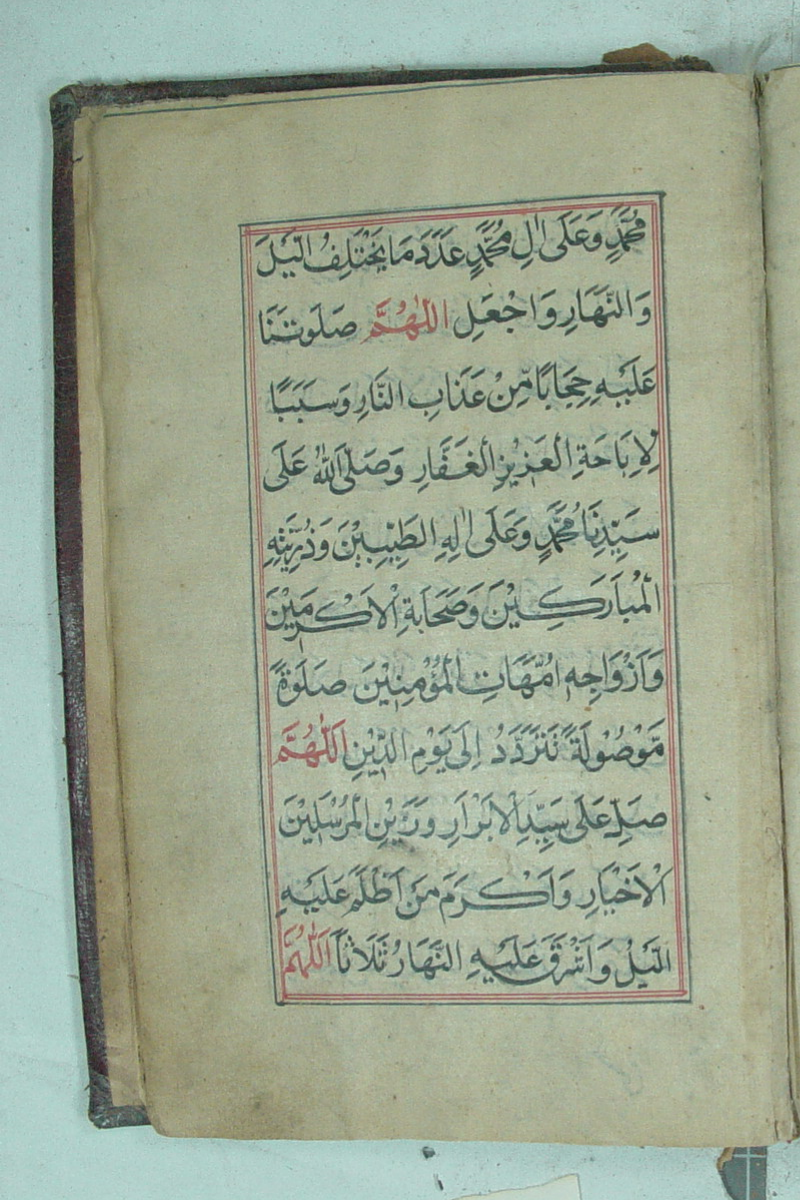 مُحَمَّدٍ وَعَلَى اٰلِ مُحَمَّدٍ عَدَدَ مَا يَخْتَلِفُ الَّيْلَ
وَالنَّهَارِ وَاجْعَلِ اللّٰهُمَّ صَلَوتَنَا
عَلَيْهِ حِجَابًا مِّنْ عَذَابِ النَّارِ وَسَبَبًا
لِاِبَاحَةِ الْعَزِيْزِ الْغَفَّارِ وَصَلَّى اللّٰهُ عَلَى
سَيِّدِنَا مُحَمَّدٍ وَعَلَى اٰلِهِ الطَّيِّبِيْنَ وَذُرِّيَّتِهِ
الْمُبَارَكِيْنَ وَصَحَابَةِ الْاَكْرَمِيْنَ
وَاَزْوَاجِهِ اُمَّهَاتِ الْمُؤْمِنِيْنَ صَلَوةً
مَّوْصُولَةً تَتَرَدَّدُ اِلَى يَوْمِ الدِّيْنِ اَللّٰهُمَّ
صَلِّ عَلَى سَيِّدِ الْاَبْرَارِ وَزَيْنِ الْمُرْسَلِيْنَ
الْاَخْيَارِ وَاَكْرَمَ مَنْ اَظْلَمَ عَلَيْهِ
الَّيْلُ وَاَشْرَقَ عَلَيْهِ النَّهَارُ ثَلَاثًا اَللّٰهُمَّ